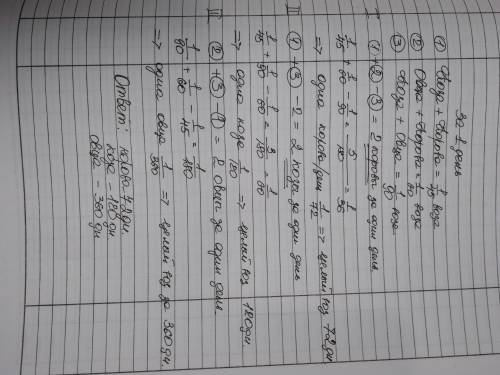 За 1 день
① 1коза + 1корова = 1/45 воза
② 1овца + 1корова = 1/60 воза
③ 1коза + 1овца = 1/90 воза
I ① + ② - ③ = 2 коровы за один день
1/45 + 1/60 - 1/90 = 5/180 = 1/36
=> одна корова/день 1/72 => целый воз 72 дн
II ① + ③ - 2 = 2 козы за один день
1/45 + 1/90 - 1/60 = 3/180 = 1/60
=> одна коза 1/120 => целый воз 120 дн.
III ② + ③ - ① = 2 овцы за один день.
1/90 + 1/60 - 1/45 = 1/180
=> одна овца 1/360 => целый воз за 360 дн.
Ответ: корова 72 дн.
коза - 120 дн
овца - 360 дн